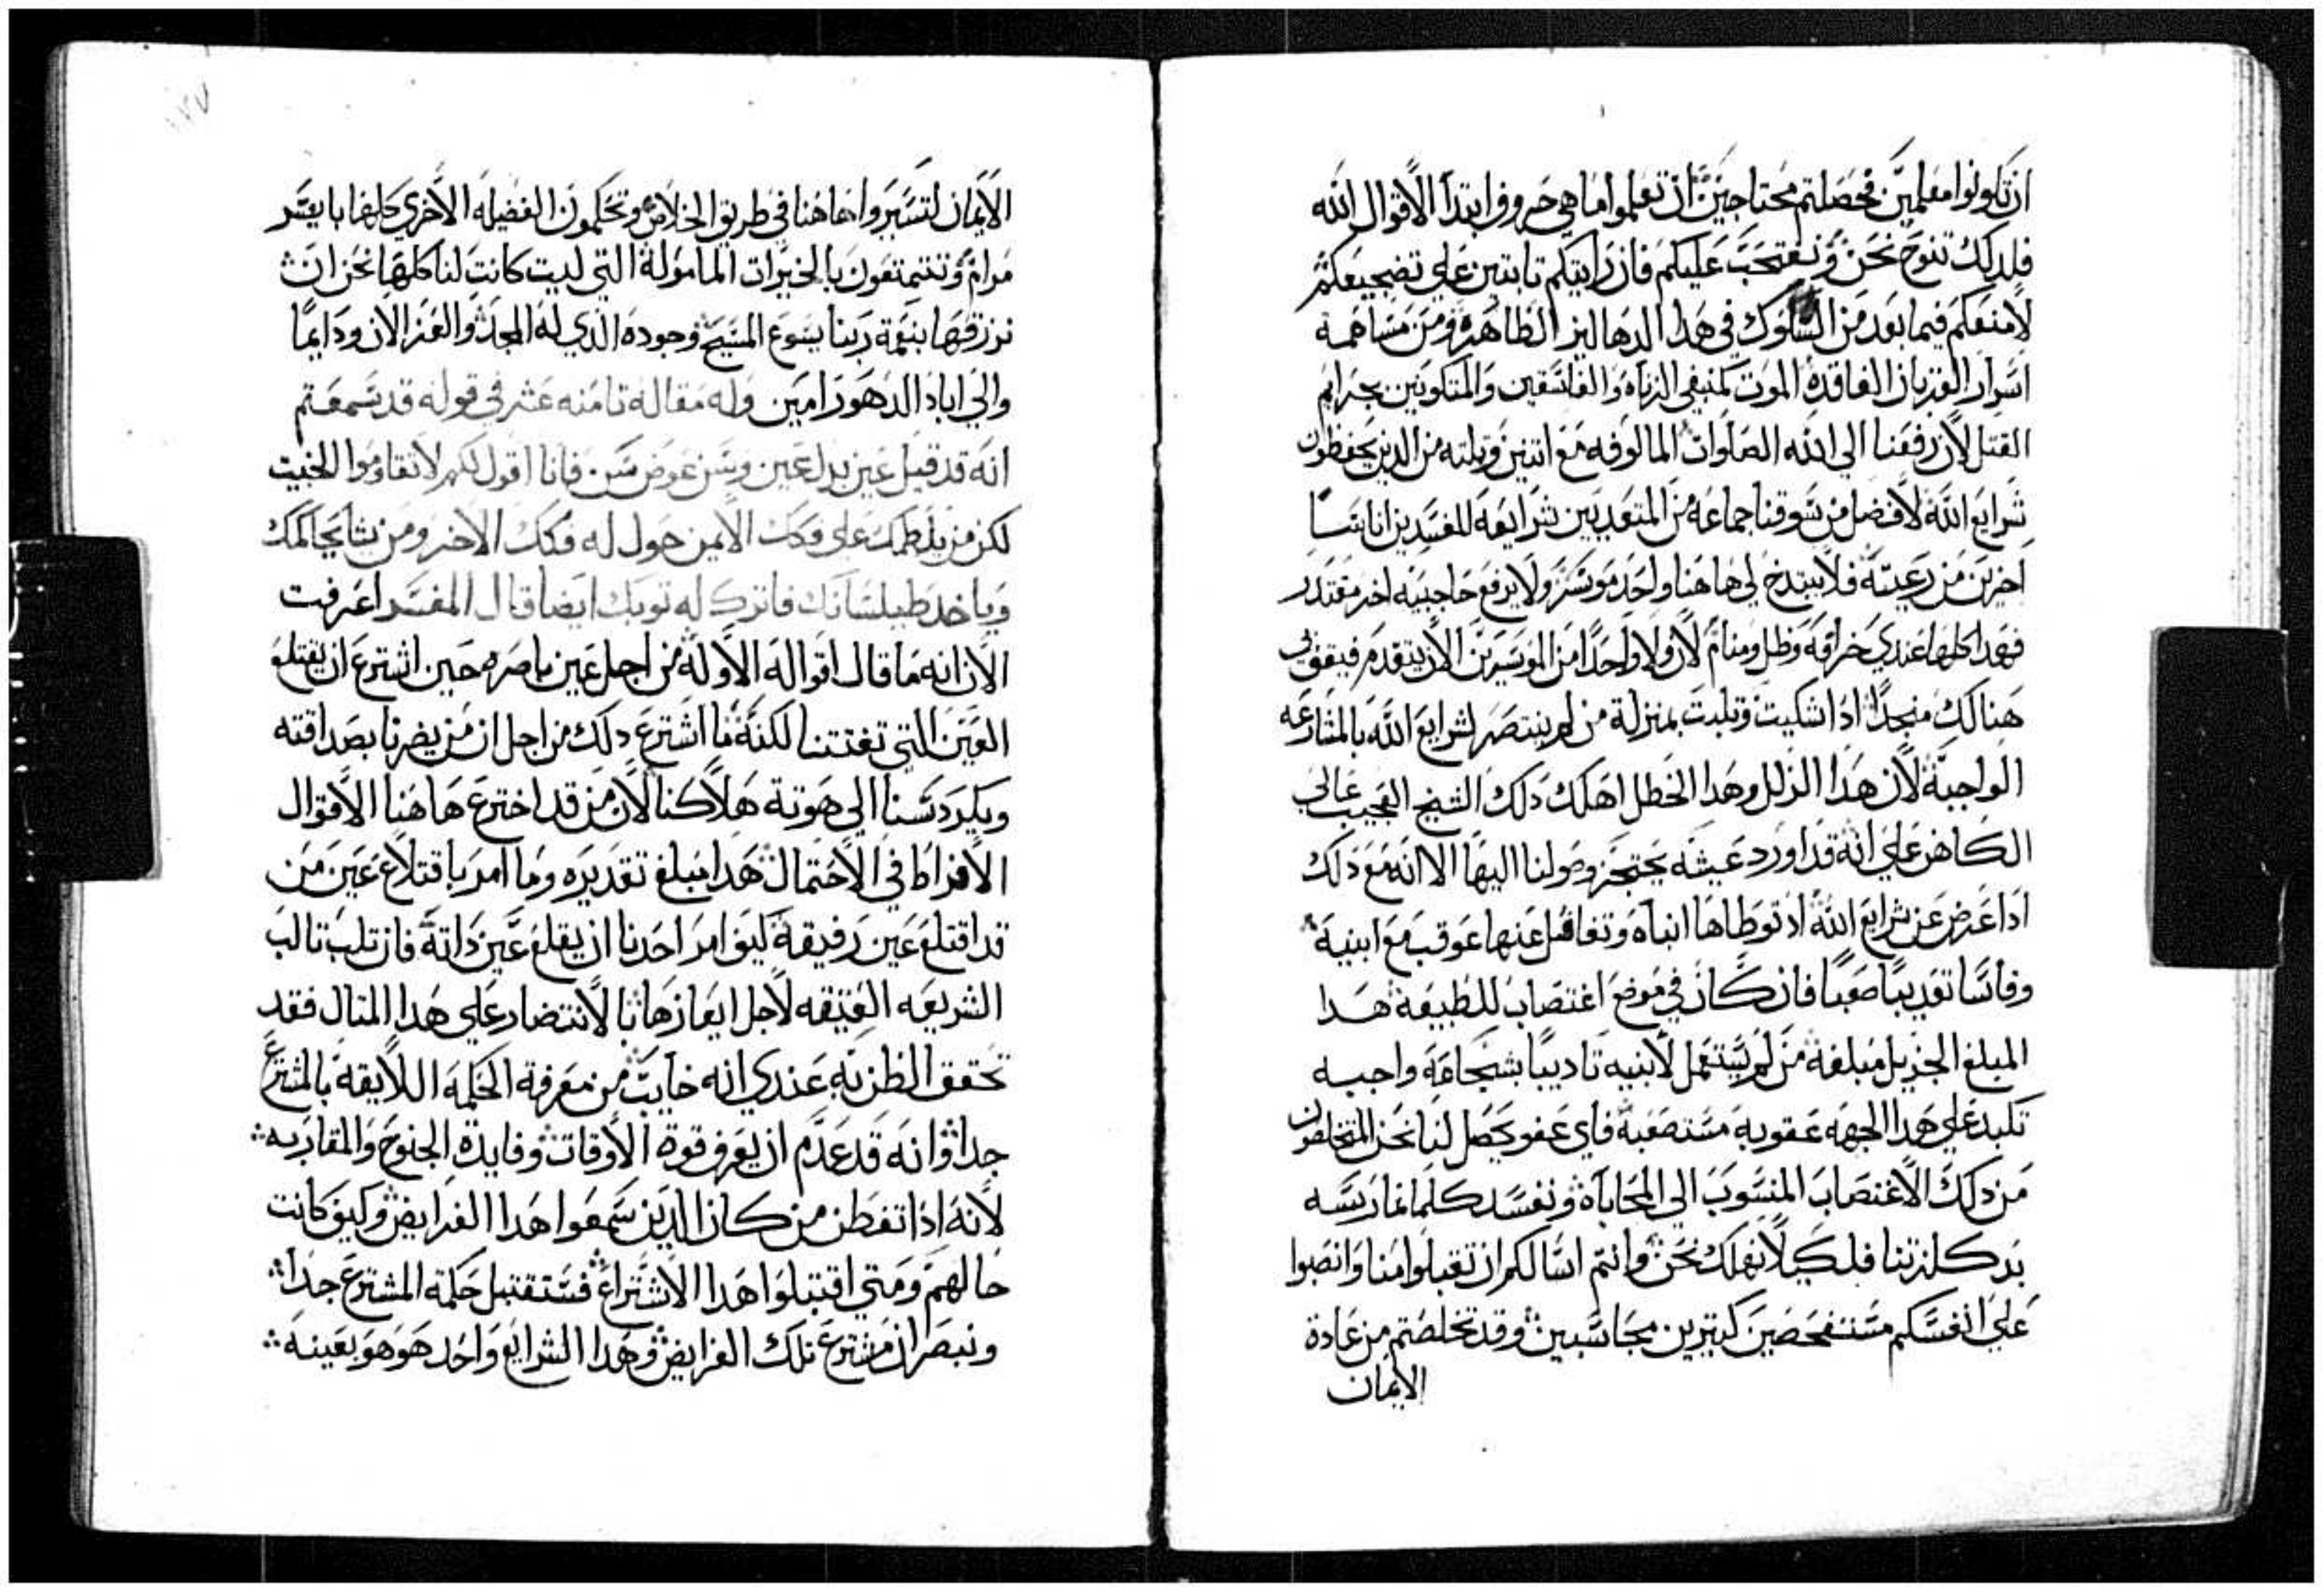 ان تكونوا معلمين فحصلتم محتاجين ان تعلموا ما هي حروف ابتدا الاقوال الله
فلدلك ننوح نحن وننتحب عليكم فان رايتكم تابتين علي تضجيعكم
لامنعكم فيما بعد من السلوك في هدا الدهاليز الطاهره ومن مساهمة
اسرار القربان الفاقدة الموت كمنفي الزناه والفاسقين والمتكونين بجرايم
القتل لان رفعنا الي الله الصلوات المالوفه مع اتنين وتلته من الدين يحفظون
شرايع الله لافضل من سوقنا جماعه من المتعديين شرايعه المفسدين اناسا
اخرين من رعيته فلا يبتدخ لي هاهنا واحد موسر ولا يرفع حاجبيه اخر مقتدر
فهدا كلها عندي خرافه وظل ومنام لان ولا واحدا من الموسرين الان يتقدم فيقف لي
هنالك منجدا ادا اشكيت وتلبت بمنزلة من لم ينتصر لشرايع الله بالمشارعه
الواجبة لان هدا الزلل وهدا الخطل اهلك دلك الشيخ العجيب عالي
الكاهن علي انه قد اورد عيشه يحتجز وصولنا اليها الا انه مع دلك
ادا عرض عن شرايع الله اد توطاها ابناه وتغافل عنها عوقب مع ابنيه
وقاسا تعديبا صعبا فان كان في موضع اغتصاب للطبيعة هدا
المبلغ الجزيل مبلغه من لم يستعمل لابنيه تاديبا بشجاعة واجبه
تكبد علي هدا الجهه عقوبه مستصعبة فاي عفو يحصل لنا نحن المتخلصون
من دلك الاغتصاب المنسوب الي المحاباه ونفسد كلما نمارسه
بدكلزتنا فلكيلا نهلك نحن وانتم اسالكم ان تقبلوا منا وانصبوا
علي انفسكم مستفحصين كتيرين محاسبين وقد تخلصتم من عادة
الايمان
الايمان لتسيروا هاهنا في طريق الخلاص وتحكمون الفضيله الاخري كلها بايسر
مرام وتتمتعون بالخيرات المامولة التي ليت كانت لنا كلها نحن ان
نرزقها بنعمة ربنا يسوع المسيح وجوده الدي له المجد والعز الان ودايما
والي اباد الدهور امين وله مقاله تامنه عشر في قوله قد سمعتم
انه قد قيل عين بدل عين وسن عوض سن فانا اقول لكم لا تقاوموا الخبيت
لكن من يلطمك علي فكك الايمن حول له فكك الاخر ومن يشا يحاكمك
وياخد طيلسانك فاترك له توبك ايضا قال المفسر اعرفت
الان انه ما قال اقواله الاولة من اجل عين باصره حين اشترع ان يقتلع
العين التي تفتننا لكنة انما اشترع دلك من اجل ان من يضرنا بصداقته
ويكردسنا الي هوتة هلاكنا لان من قد اخترع هاهنا الاقوال
الافراط في الاحتمال هدا مبلغ تقديره وما امر باقتلاع عين من
قد اقتلع عين رفيقة كيف امر احدنا ان يقلع عين داتة فان تلب تالب
الشريعه العتيقه لاجل ايعازها بالانتصار علي هدا المتال فقد
تحقق الظن به عندي انه خايب من معرفة الحكمه اللايقه بالمشترع
جدا وانه قد عدم ان يعرف قوة الاوقات وفايدة الجنوح والمقاربه
لانه ادا تفطن من كان الدين سمعوا هدا الفرايض وكيف كانت
حالهم ومتي اقتبلوا هدا الاشتراع فستقتبل حكمة المشترع جدا
وتبصر ان مشترع تلك الفرايض وهدا الشرايع واحد هو هو بعينه